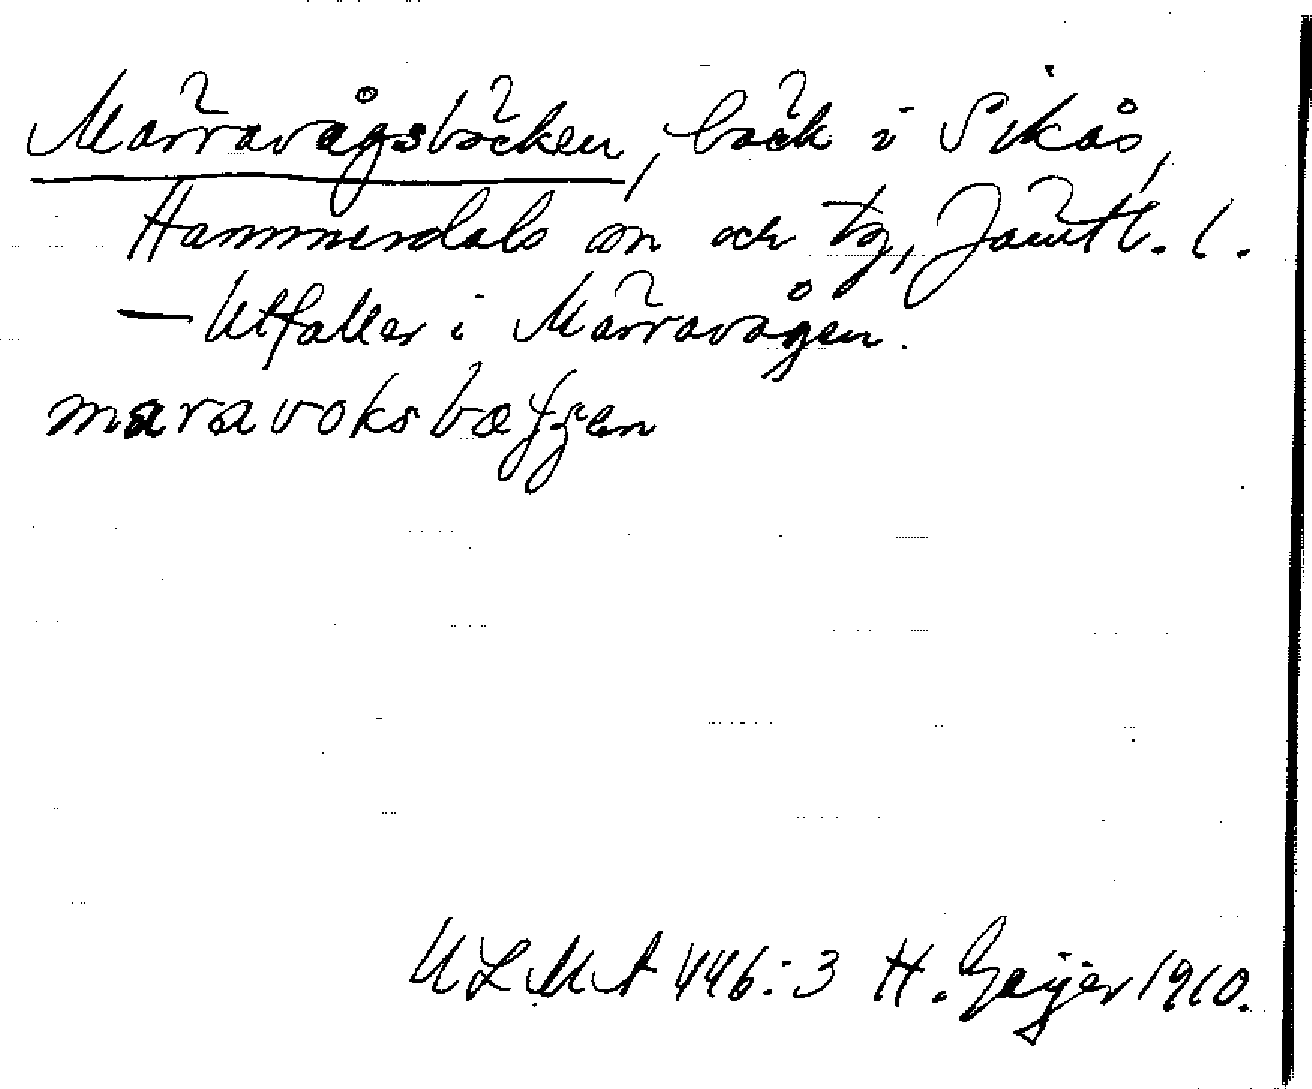 Märravågsbäcken, bäck i Sikås,
Hammerdals sn och tg, Jämtl. l.
— Utfaller i Märravågen.
maravoksbæʄʄen
ULMA 446:3 H. Geijer 1910.